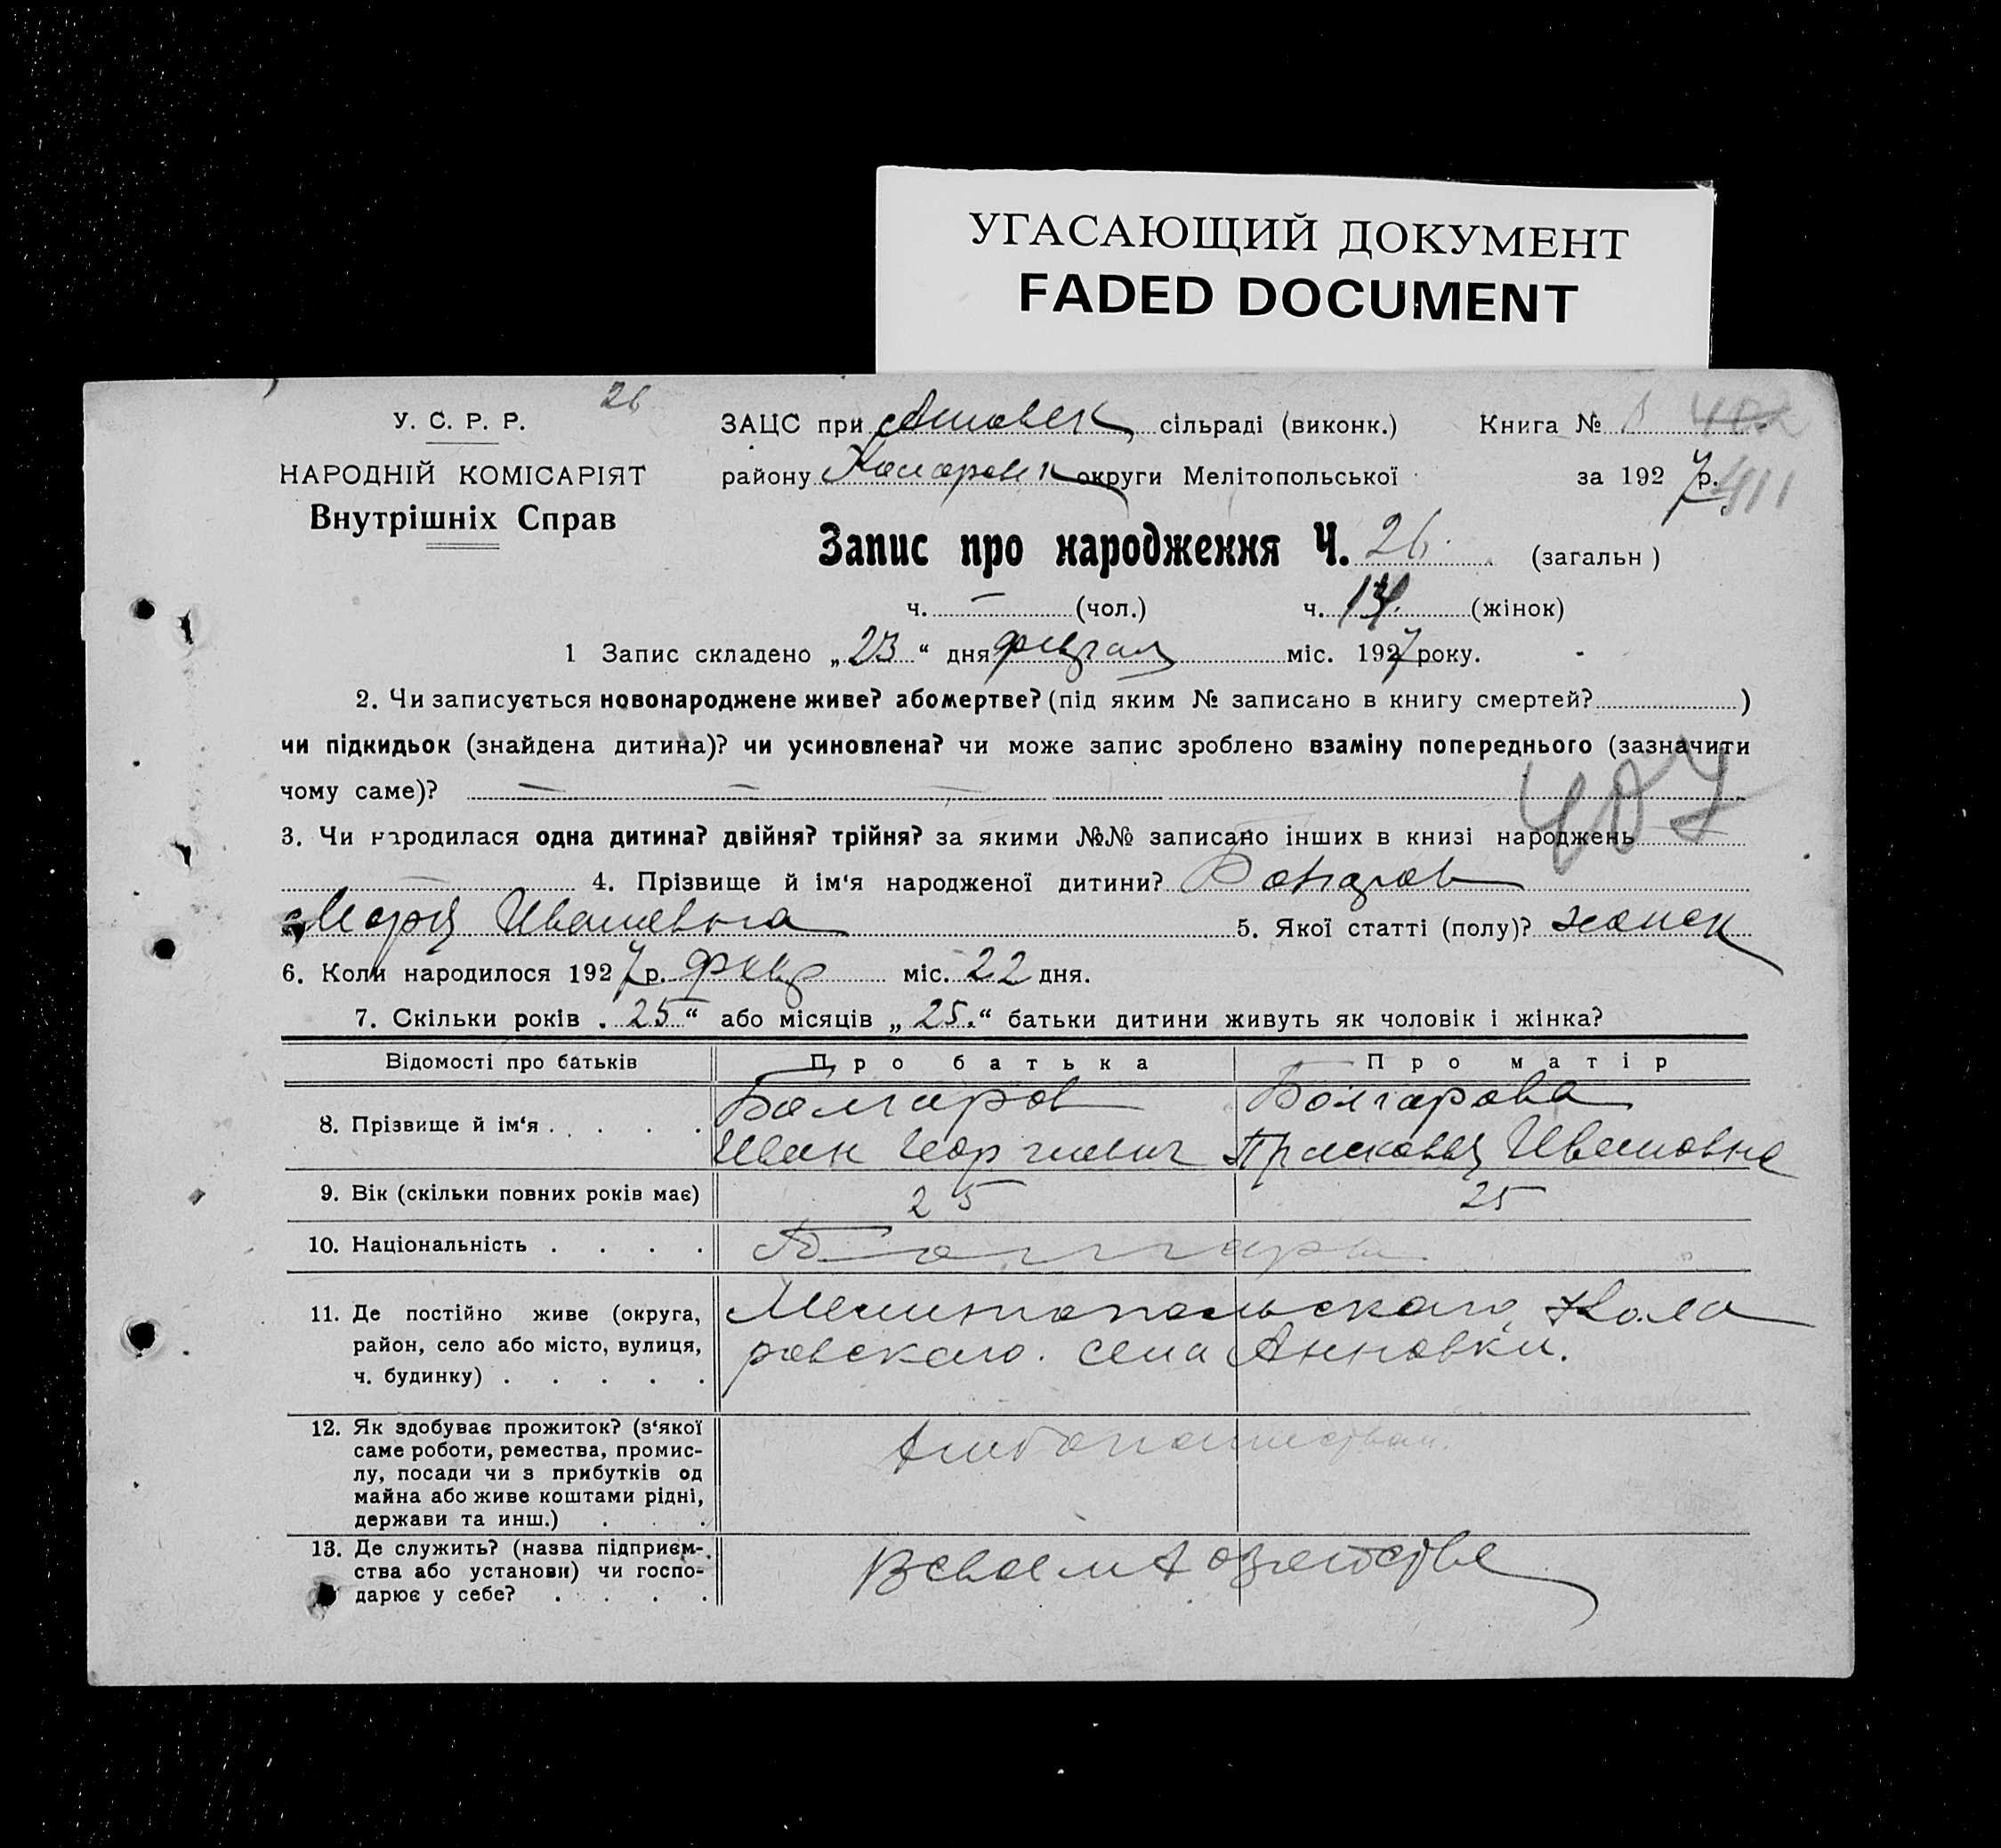 УГАСАЮЩИЙ ДОКУМЕНТ
FADED DOCUMENT
26
У. С. Р. Р.
НАРОДНІЙ КОМІСАРІЯТ
Внутрішніх Справ
ЗАЦС при сільраді (виконк.) Книга №
району округи Мелітопольської за 1927 р. 411
Запис про народження Ч. 26. (загальн )
ч. — (чол.) ч. 14. (жінок)
1 Запис складено „23“ дня міс. 1927 року.
2. Чи записується новонароджене живе? або мертве? (під яким № записано в книгу смертей? )
чи підкидьок (знайдена дитина)? чи усиновлена? чи може запис зроблено взаміну попереднього (зазначити
чому саме)? — — —
407
3. Чи народилася одна дитина? двійня? трійня? за якими №№ записано інших в книзі народжень —
— 4. Прізвище й ім‘я народженої дитини?
Мария Ивановна 5. Якої статті (полу)? женск
6. Коли народилося 1927 р. февр міс. 22 дня.
7. Скільки років „25“ або місяців „25.“ батьки дитини живуть як чоловік і жінка?
Відомості про батьків Про батька Про матір
8. Прізвище й ім‘я . . . . . Болгаров Болгарова
Иван Прасковья Ивановна
9. Вік (скільки повних років має) 25 25
10. Національність . . . . Болгары
11. Де постійно живе (округа, район, село або місто, вулиця, ч. будинку) . . . . . Мелитопольского, Кола
ровского. села Анновки.
12. Як здобуває прожиток? (з‘якої
саме роботи, ремества, промис-
лу, посади чи з прибутків од
майна або живе коштами рідні,
держави та инш.) . . .
13. Де служить? (назва підприєм-
ства або установи) чи госпо-
дарює у себе? . . . . В своем хозяйстве